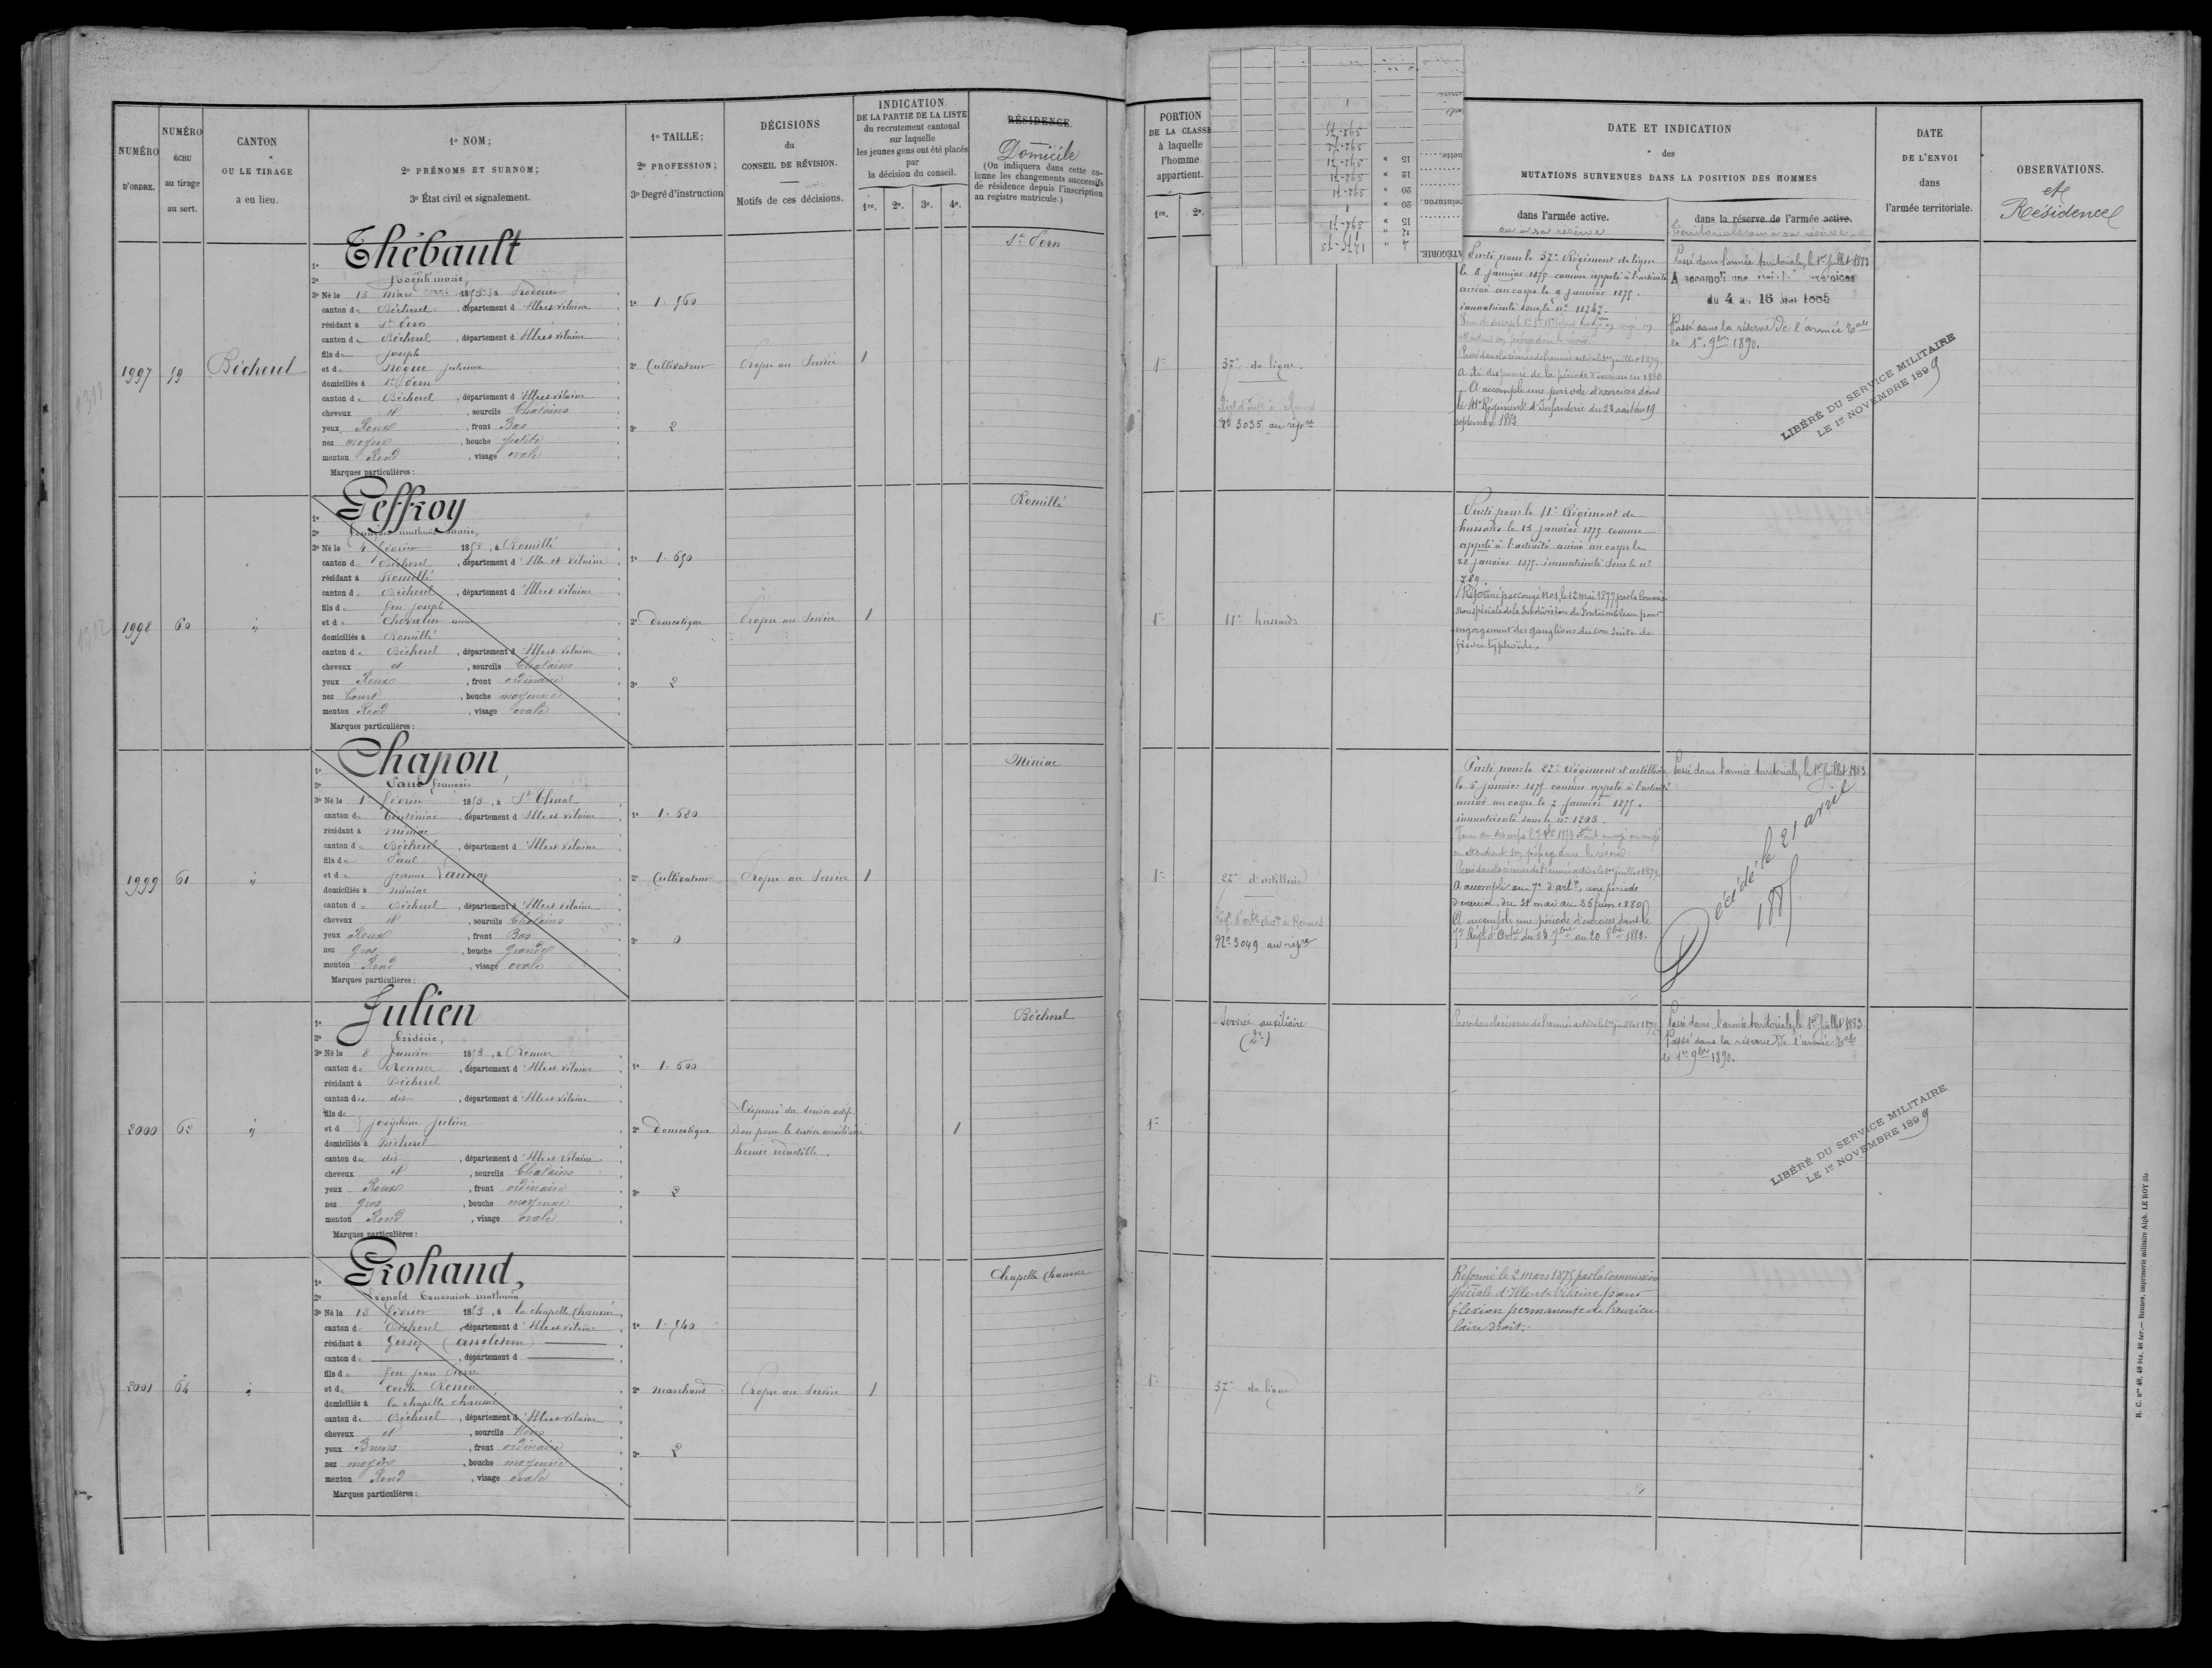 NUMÉRO
D'ORDRE.
NUMÉRO
ÉCHU
au tirage
au sort.
CANTON
OU LE TIRAGE
a eu lieu.
1° NOM;
2° PRÉNOMS ET SURNOM;
3° État civil et signalement.
1° TAILLE;
2° PROFESSION;
3° Degré d'instruction
DÉCISIONS
du
CONSEIL DE RÉVISION.
Motifs de ces décisions.
INDICATION
DE LA PARTIE DE LA LISTE
du recrutement cantonal
sur laquelle
les jeunes gens ont été placés
par
la décision du conseil.
1re. 2e. 3e. 4e.
RÉSIDENCE
Domicile
(On indiquera dans cette co-
lonne les changements successifs
de résidence depuis l'inscription
au registre matricule.)
PORTION
DE LA CLASSE
à laquelle
l'homme
appartient.
1re. 2e.
DATE ET INDICATION
des
MUTATIONS SURVENUES DANS LA POSITION DES HOMMES
dans l'armée active.
ou à sa réserve
dans la réserve de l'armée active.
territoriale ou à sa réserve
DATE
DE L'ENVOI
dans
l'armée territoriale.
OBSERVATIONS.
et
Résidence
1997
59
Bécherel
1° Thébault
2° Joseph marie,
3° Né le 13 mars 1853, à
canton de Bécherel, département d'Ille et Vilaine
résidant à St Pern
canton de Bécherel, département d'Ille et Vilaine
fils de Joseph
et de Nogue Julienne
domiciliés à St Pern
canton de Bécherel, département d'Ille et Vilaine
cheveux et, sourcils Chatains
yeux Roux, front Bas
nez moyen, bouche petite
menton Rond, visage ovale
Marques particulières:
1° 1.560
2° Cultivateur
3° 2
Propre au Service
1
St Pern
1re
37e de ligne.
No 3035 au répre
Parti pour le 37e Régiment de ligne
le 8 janvier 1875 comme appelé à l'activité
arrivé au corps le 9 janvier 1875.
immatriculé sous le no 11247.
Passé dans la réserve de l'armée active le 1er juillet 1879.
A été dispensé de la période d'exercices en 1880
A accompli une période d'exercices dans
le 41e Régiment d'Infanterie du 23 août au 19
septembre 1883
Passé dans l'armée territoriale, le 1er Juillet 1883
A accompli une
du 4 au 16 mai 1885
Passé dans la réserve de l'armée tale
le 1er 9bre 1890.
LIBÉRÉ DU SERVICE MILITAIRE
LE 1er NOVEMBRE 1899
1998
60
"
1° Geffroy
2° François mathurin marie,
3° Né le 4 février 1853, à Romillé
canton de Bécherel, département d'Ille et Vilaine
résidant à Romillé
canton de Bécherel, département d'Ille et Vilaine
fils de feu Joseph
et de Chevalier anne
domiciliés à Romillé
canton de Bécherel, département d'Ille et Vilaine
cheveux et, sourcils Chatains
yeux Roux, front ordinaire
nez Court, bouche moyenne
menton Rond, visage ovale
Marques particulières:
1° 1.650
2° domestique
3° 2
Propre au Service
1
Romillé
1re
11e hussards
Parti pour le 11e Régiment de
hussards le 15 janvier 1875 comme
appelé à l'activité arrivé au corps le
20 janvier 1875. immatriculé sous le no
789.
Réformé par congé No 1, le 12 mai 1877 par la Commis-
sion spéciale de la Subdivision de Fontainebleau pour
engorgement des ganglions du cou suite de
fièvre typhoïde.
1999
61
"
1° Chapon,
2° Paul françois
3° Né le 1er février 1853, à St Thual
canton de Tinténiac, département d'Ille et Vilaine
résidant à miniac
canton de Bécherel, département d'Ille et Vilaine
fils de Paul
et de Jeanne Launay
domiciliés à miniac
canton de Bécherel, département d'Ille et Vilaine
cheveux et, sourcils Chatains
yeux Roux, front Bas
nez gros, bouche Grande
menton Rond, visage ovale
Marques particulières:
1° 1.680
2° Cultivateur
3° 0
Propre au Service
1
Miniac
1re
22e d'artillerie
No 3049 au répre
Parti pour le 22e Régiment d'artillerie
le 5 janvier 1875 comme appelé à l'activité
arrivé au corps le 7 janvier 1875.
immatriculé sous le no 1203.
Passé dans la réserve de l'armée active le 1er juillet 1879.
A accompli au 7e d'artie, une période
d'exercice, du 31 mai au 26 juin 1880
A accompli une période d'exercices dans le
7e Régt d'Artie du 23 7bre au 20 8bre 1882.
Passé dans l'armée territoriale, le 1er Juillet 1883
Décédé le 21 avril
1885
2000
62
"
1° Julien
2° Frédéric,
3° Né le 8 Janvier 1853, à Rennes
canton de Rennes, département d'Ille et Vilaine
résidant à Bécherel
canton du dit, département d'Ille et Vilaine
fils de
et d Joséphine Julien
domiciliés à Bécherel
canton du dit, département d'Ille et Vilaine
cheveux et, sourcils Chatains
yeux Roux, front ordinaire
nez gros, bouche moyenne
menton Rond, visage ovale
Marques particulières:
1° 1.600
2° domestique
3° 2
Dispensé du service actif.
Bon pour le service auxiliaire
hernie réductible.
1
Bécherel
1re
Service auxiliaire
(2e)
Passé dans la réserve de l'armée active le 1er juillet 1879
Passé dans l'armée territoriale, le 1er Juillet 1883
Passé dans la réserve de l'armée tale
le 1er 9bre 1890.
LIBÉRÉ DU SERVICE MILITAIRE
LE 1er NOVEMBRE 1899
2001
64
"
1° Grohand,
2° Léopold Toussaint mathurin
3° Né le 13 février 1853, à la chapelle Chaussée
canton de Bécherel, département d'Ille et Vilaine
résidant à Gersey (angleterre)
canton d, département d
fils de feu jean Pierre
et de Cécile
domiciliés à la chapelle chaussée
canton de Bécherel, département d'Ille et Vilaine
cheveux et, sourcils Noirs
yeux Bruns, front ordinaire
nez moyen, bouche moyenne
menton Rond, visage ovale
Marques particulières:
1° 1.540
2° marchand
3° 2
Propre au Service
1
Chapelle Chaussée
1re
37e de ligne
Réformé le 2 mars 1875 par la Commission
spéciale d'Ille-et-Vilaine pour
flexion permanente de l'auricu-
laire droit.
R. C. nos 48, 48 bis, 48 ter. — Rennes, imprimerie militaire Alph. LE ROY fils